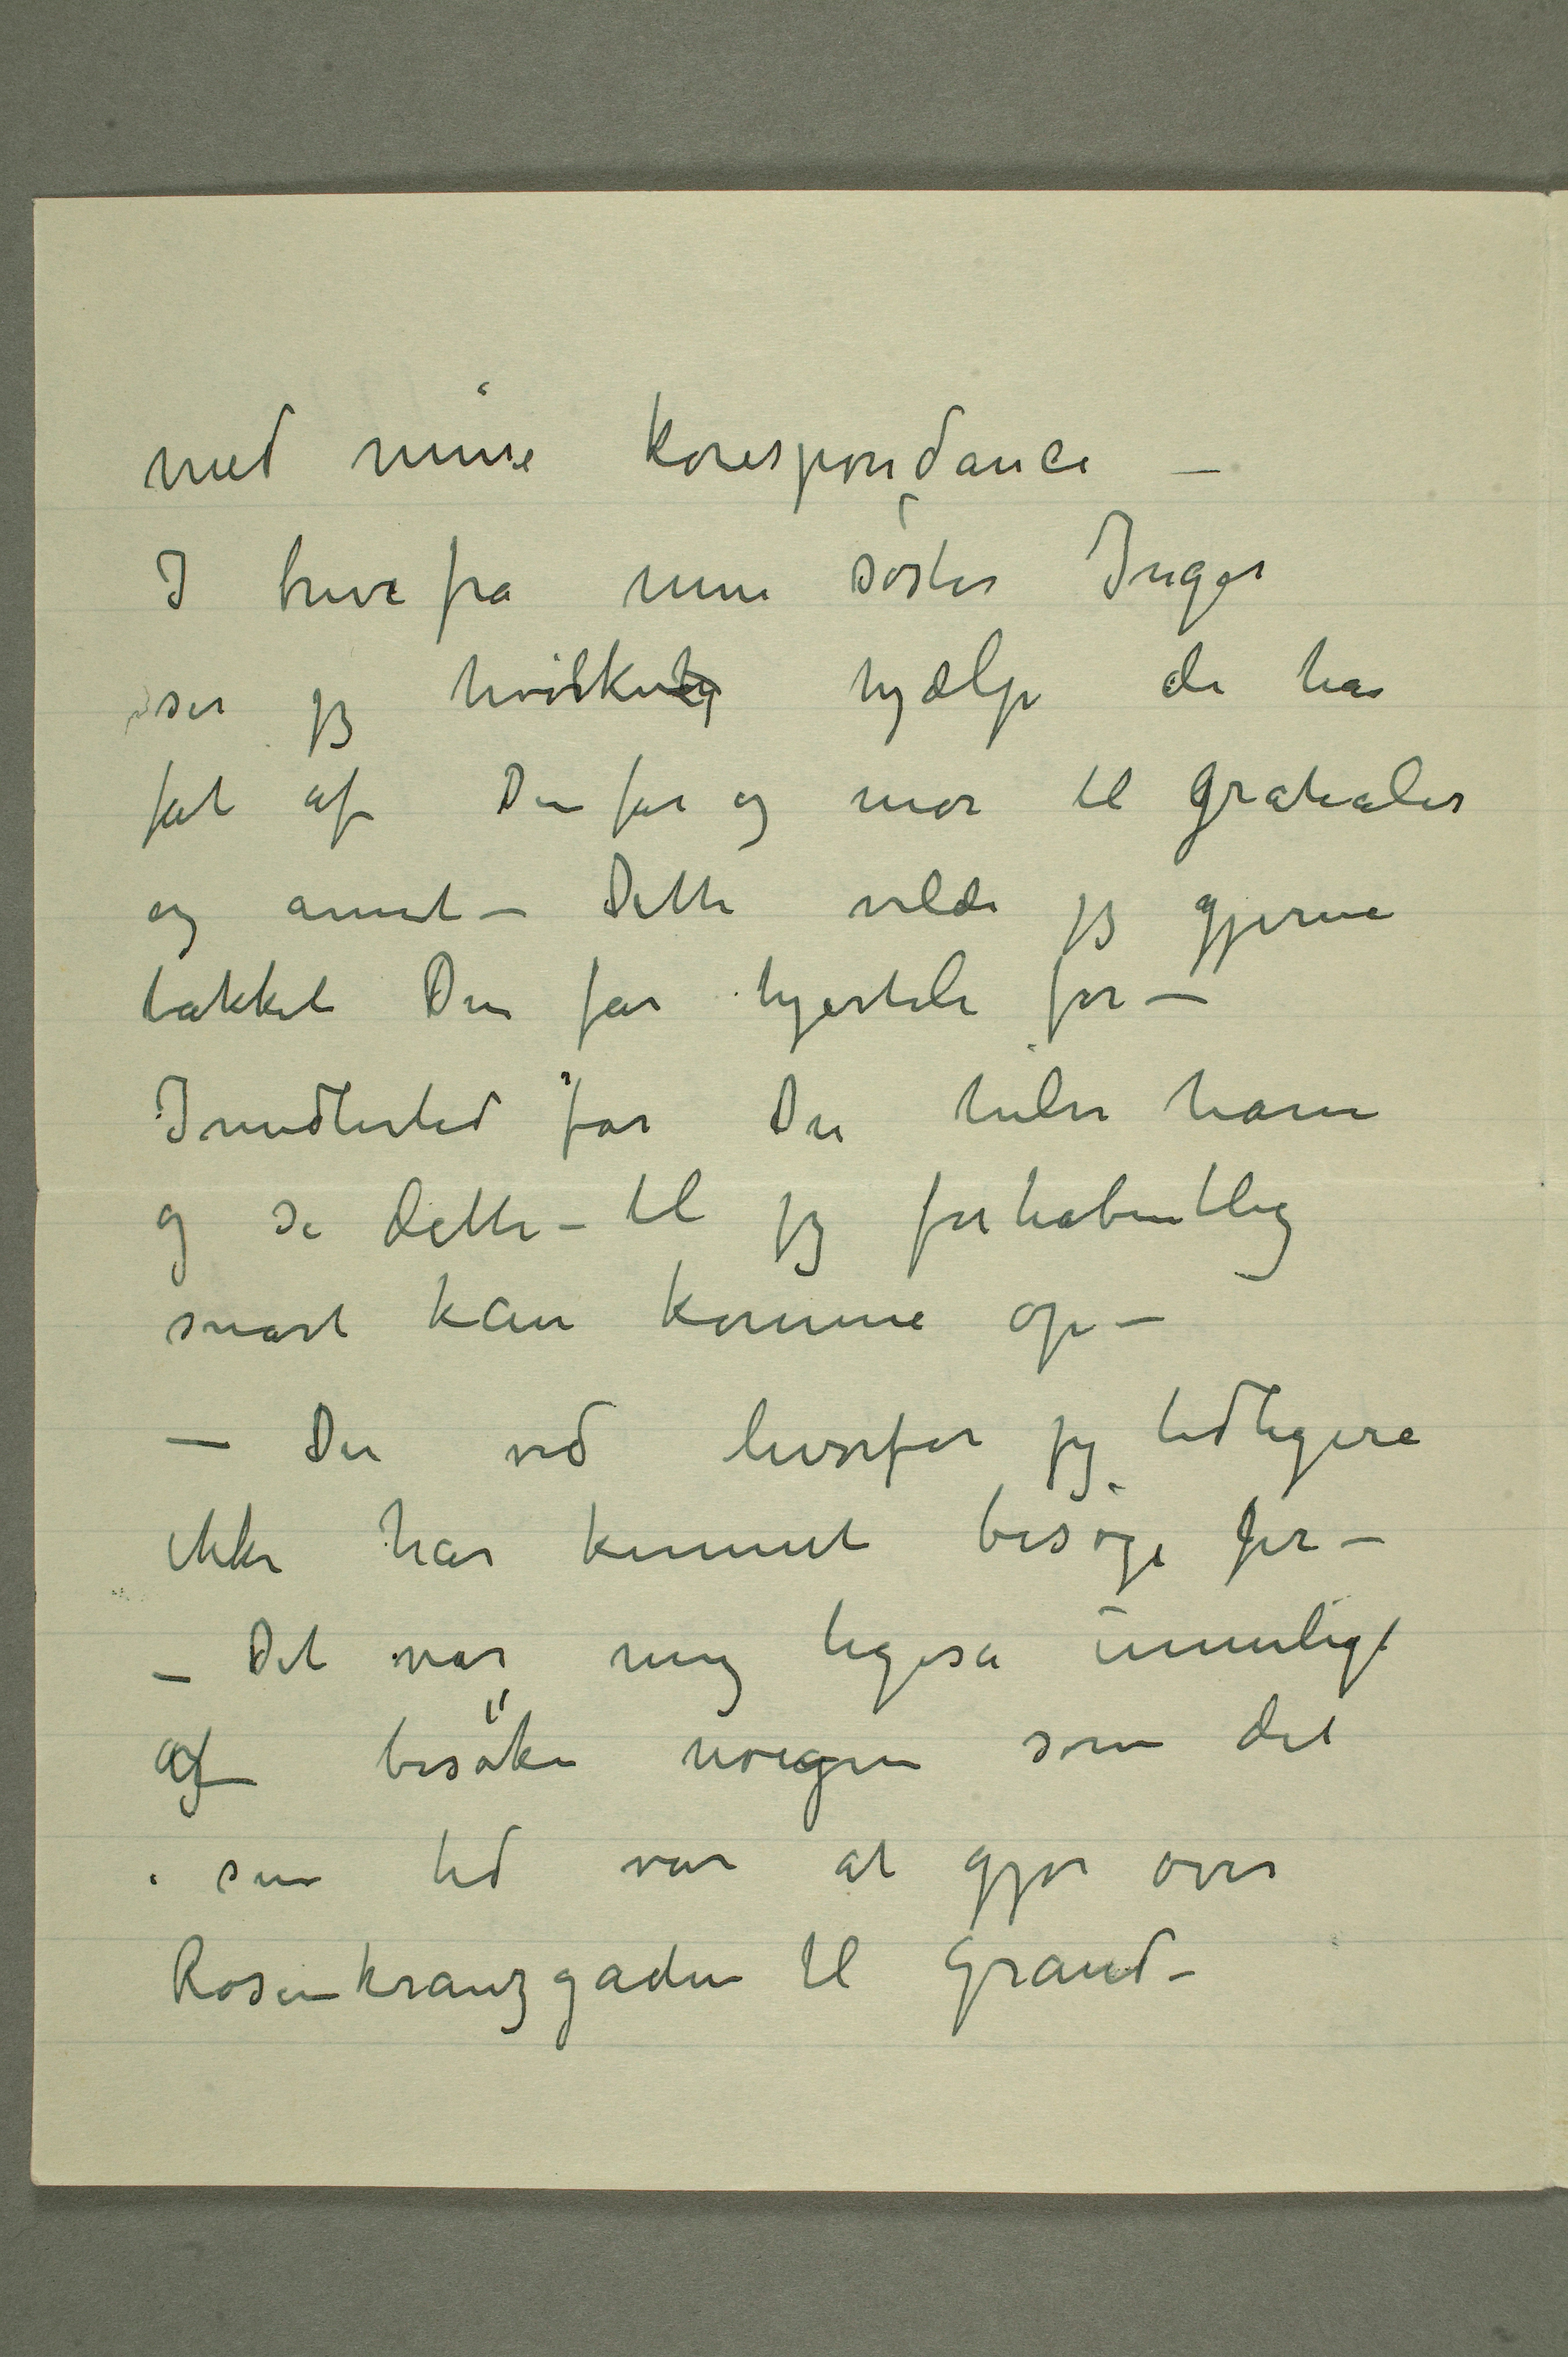 med mine korespondance –
I breve fra min søster Inger
ser jeg hvilken hjælp de har
fåt af Din far og mor til gratialer
og annet – Dette vilde jeg gjerne
takket Din far hjerteli for –
Imidlertid får Du hilse ham
og si dette – til jeg forhåbentlig
snart kan komme op –
– Du ved hvorfor jeg tidligere
ikke har kunnet besøge Jer –
– Det var mig ligeså umuligt
at besøke noegen som det
i sin tid var at gjør over
Rosenkranzgaden til Grand –